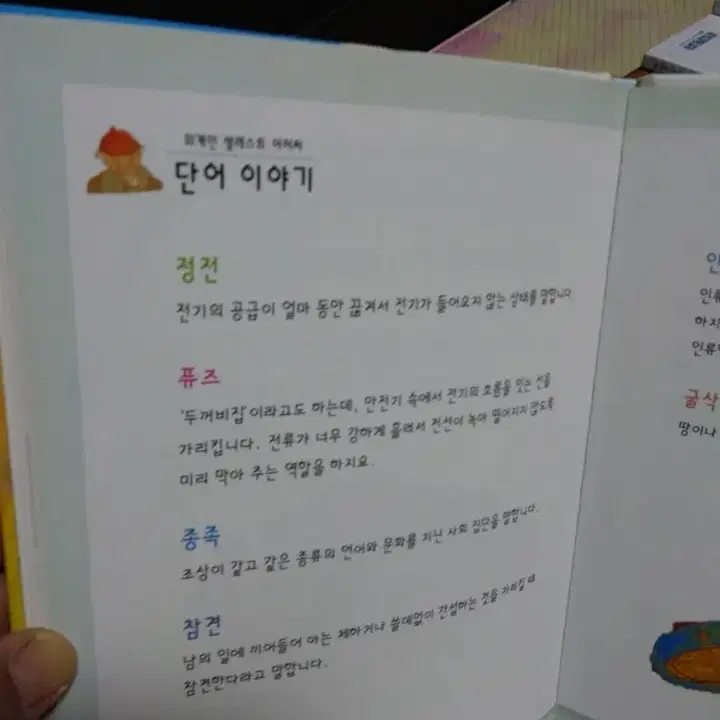 외계인 셀레스트 아저씨
단어 이야기
정전
전기의 공급이 얼마 동안 끊겨서 전기가 들어오지 않는 상태를 말합니다.
퓨즈
'두꺼비집'이라고도 하는데, 안전기 속에서 전기의 흐름을 잇는 선을
가리킵니다. 전류가 너무 강하게 흘러서 전선이 녹아 떨어지지 않도록
미리 막아 주는 역할을 하지요.
종족
조상이 같고 같은 종류의 언어와 문화를 지닌 사회 집단을 말합니다.
참견
남의 일에 끼어들어 아는 체하거나 쓸데없이 간섭하는 것을 가리킬 때
참견한다라고 말합니다.
인류
하지
인류
굴삭
땅이나